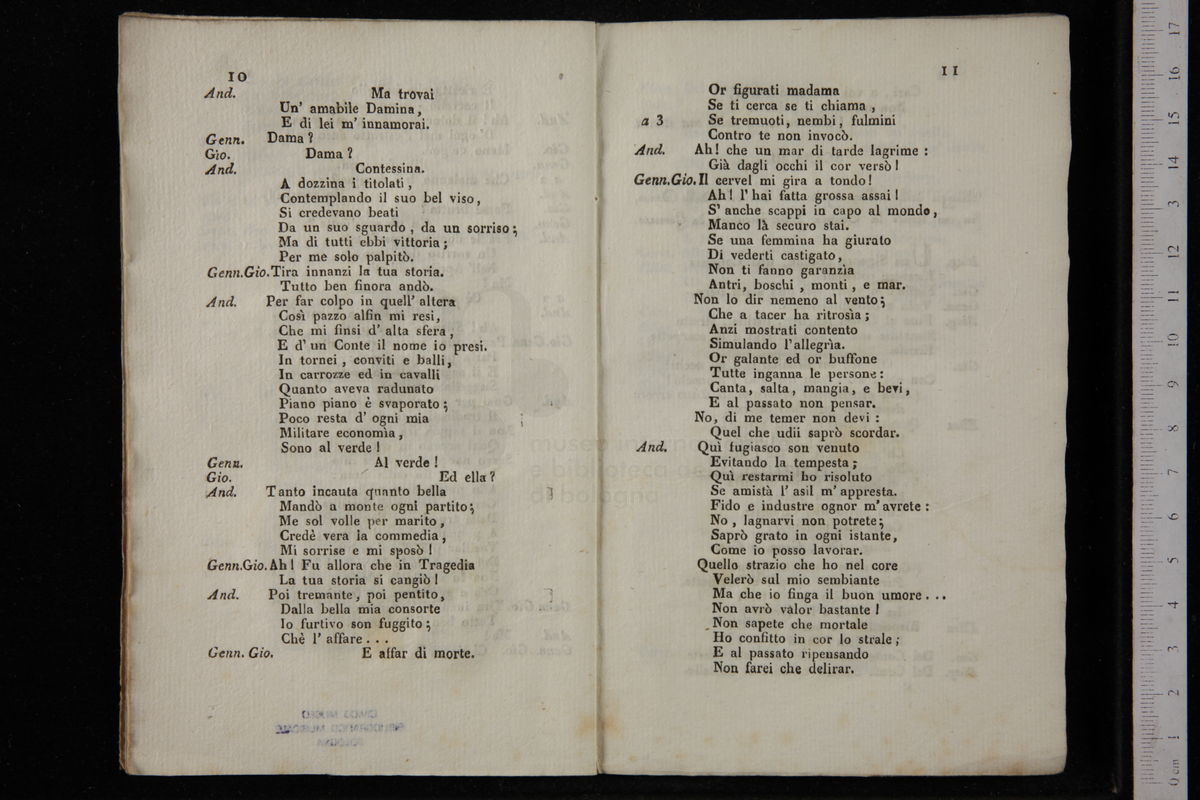 10
And. Ma trovai
Un' amabile Damina,
E di lei m' innamorai.
Genn. Dama?
Gio. Dama?
And. Contessina.
A dozzina i titolati,
Contemplando il suo bel viso,
Si credevano beati
Da un suo sguardo, da un sorriso;
Ma di tutti ebbi vittoria;
Per me solo palpitò.
Genn.Gio. Tira innanzi la tua storia.
Tutto ben finora andò.
And. Per far colpo in quell' altera
Così pazzo alfin mi resi,
Che mi finsi d' alta sfera,
E d' un Conte il nome io presi.
In tornei, conviti e balli,
In carrozze ed in cavalli
Quanto aveva radunato
Piano piano è svaporato;
Poco resta d' ogni mia
Militare economìa,
Sono al verde!
Genn. Al verde!
Gio. Ed ella?
And. Tanto incauta quanto bella
Mandò a monte ogni partito;
Me sol volle per marito,
Credè vera la commedia,
Mi sorrise e mi sposò!
Genn.Gio. Ah! Fu allora che in Tragedia
La tua storia si cangiò!
And. Poi tremante, poi pentito,
Dalla bella mia consorte
Io furtivo son fuggito;
Chè l' affare . . .
Genn. Gio. E affar di morte.
11
Or figurati madama
Se ti cerca se ti chiama,
a 3 Se tremuoti, nembi, fulmini
Contro te non invocò.
And. Ah! che un mar di tarde lagrime:
Già dagli occhi il cor versò!
Genn.Gio. Il cervel mi gira a tondo!
Ah! l' hai fatta grossa assai!
S' anche scappi in capo al mondo,
Manco là securo stai.
Se una femmina ha giurato
Di vederti castigato,
Non ti fanno garanzìa
Antri, boschi, monti, e mar.
Non lo dir nemeno al vento;
Che a tacer ha ritrosìa;
Anzi mostrati contento
Simulando l' allegrìa.
Or galante ed or buffone
Tutte inganna le persone:
Canta, salta, mangia, e bevi,
E al passato non pensar.
No, di me temer non devi:
Quel che udii saprò scordar.
And. Quì fugiasco son venuto
Evitando la tempesta;
Quì restarmi ho risoluto
Se amistà l' asil m' appresta.
Fido e industre ognor m' avrete:
No, lagnarvi non potrete;
Saprò grato in ogni istante,
Come io posso lavorar.
Quello strazio che ho nel core
Velerò sul mio sembiante
Ma che io finga il buon umore . . .
Non avrò valor bastante!
Non sapete che mortale
Ho confitto in cor lo strale;
E al passato ripensando
Non farei che delirar.